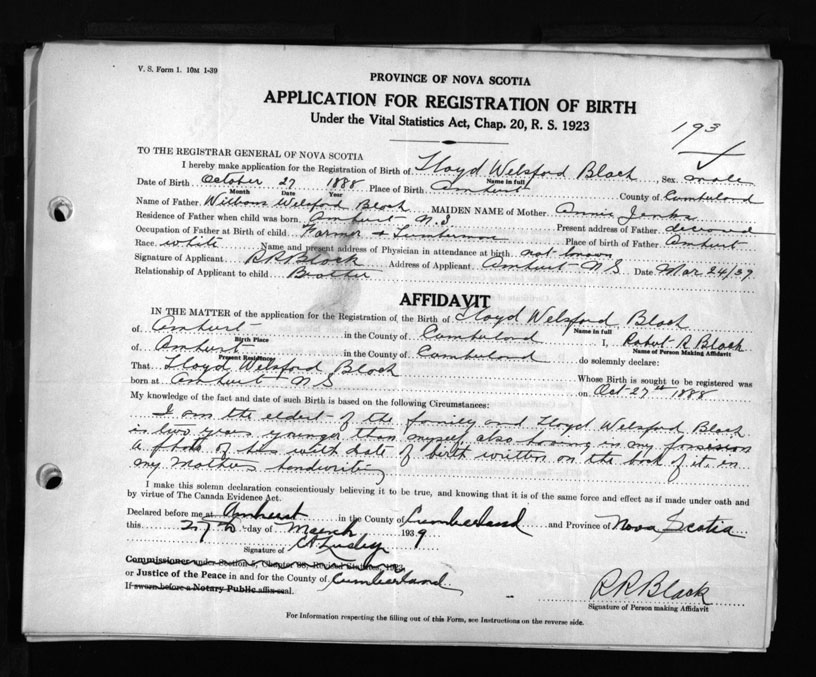 V. S. Form 1. 10M 1-39
PROVINCE OF NOVA SCOTIA
APPLICATION FOR REGISTRATION OF BIRTH
Under the Vital Statistics Act, Chap. 20, R. S. 1923
193
TO THE REGISTRAR GENERAL OF NOVA SCOTIA
I hereby make application for the Registration of Birth of Lloyd Welsford Black Sex male
Name in full
Date of Birth October 27 1888 Place of Birth Amherst County of Cumberland
Month Date Year
Name of Father Welsford Black MAIDEN NAME of Mother Annie Jenks
Residence of Father when child was born Amherst N.S Present address of Father deceased
Occupation of Father at Birth of child Farmer & Lumberman Place of birth of Father Amherst
Race white Name and present address of Physician in attendance at birth not known
Signature of Applicant R R Black Address of Applicant Amherst N S Date Mar 24/39
Relationship of Applicant to child Brother
AFFIDAVIT
IN THE MATTER of the application for the Registration of the Birth of Lloyd Welsford Black
Name in full
of Amherst in the County of Cumberland I, Robert R Black
Birth Place Name of Person Making Affidavit
of Amherst in the County of Cumberland do solemnly declare:
Present Residence
That Lloyd Welsford Black Whose Birth is sought to be registered was
born at Amherst N S on Oct 27th 1888
My knowledge of the fact and date of such Birth is based on the following Circumstances:
I am the eldest of the family and Lloyd Welsford Black
is two years younger than myself, also having in my possession
a photo of his with date of birth written on the back of it in
my Mothers handwriting
I make this solemn declaration conscientiously believing it to be true, and knowing that it is of the same force and effect as if made under oath and
by virtue of The Canada Evidence Act.
Declared before me at Amherst in the County of Cumberland and Province of Nova Scotia
this 27th day of March 1939
Signature of
Commissioner under Section 5, Chapter
or Justice of the Peace in and for the County of Cumberland
If sworn before a Notary Public affix seal.
R R Black
Signature of Person making Affidavit
For Information respecting the filling out of this Form, see Instructions on the reverse side.